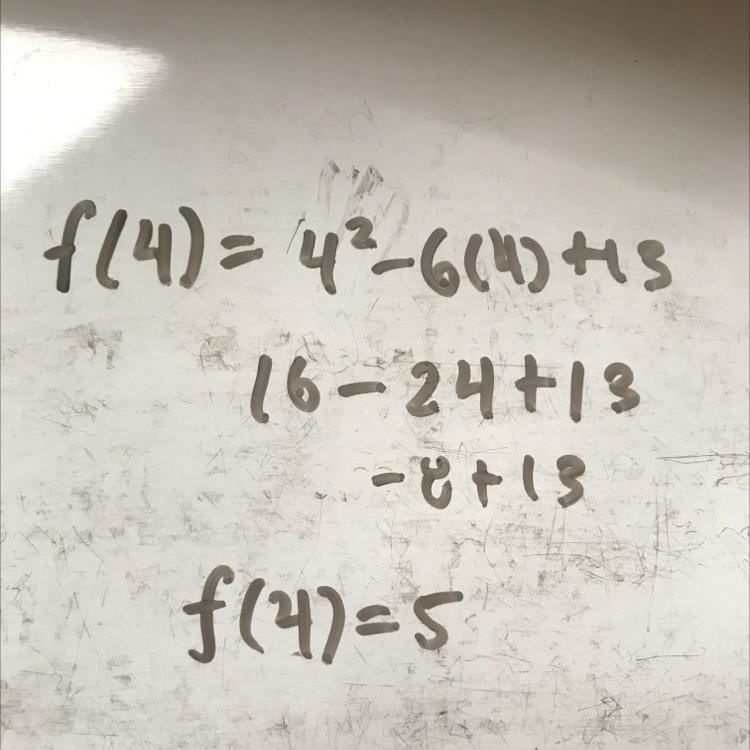 f(4) = 4² - 6(4) + 13
16 - 24 + 13
- 8 + 13
f(4) = 5